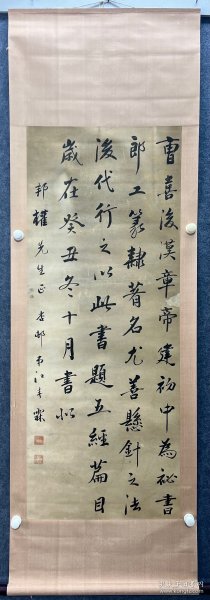 曹喜後漢章帝建初中為祕書
郎工篆隸著名尤善懸針之法
後代行之以此書題五經篇目
歲在癸丑冬十月書似
邦權先生正 杏邨弟江春霖